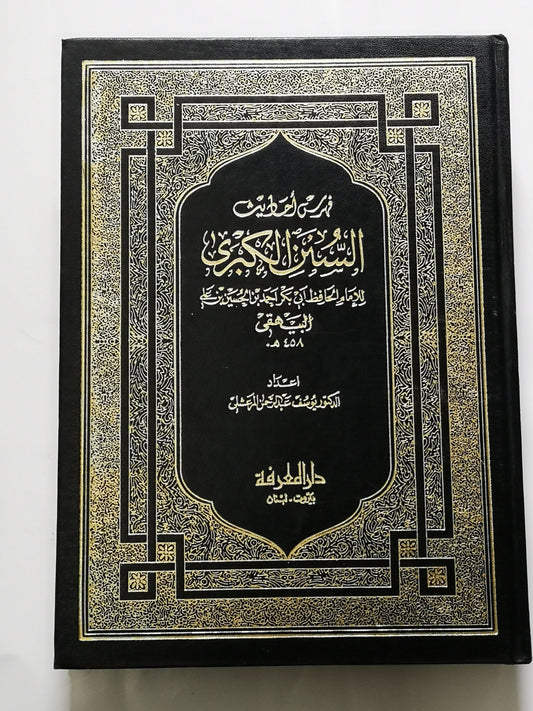 فهرس أحاديث
السنن الكبرى
للإمام الحافظ أبي بكر احمد بن الحسين بن علي
البيهقي
٤٥٨ هـ.
اعداد
الدكتور يوسف عبد الرحمن المرعشلي
دار المعرفة
بيروت - لبنان